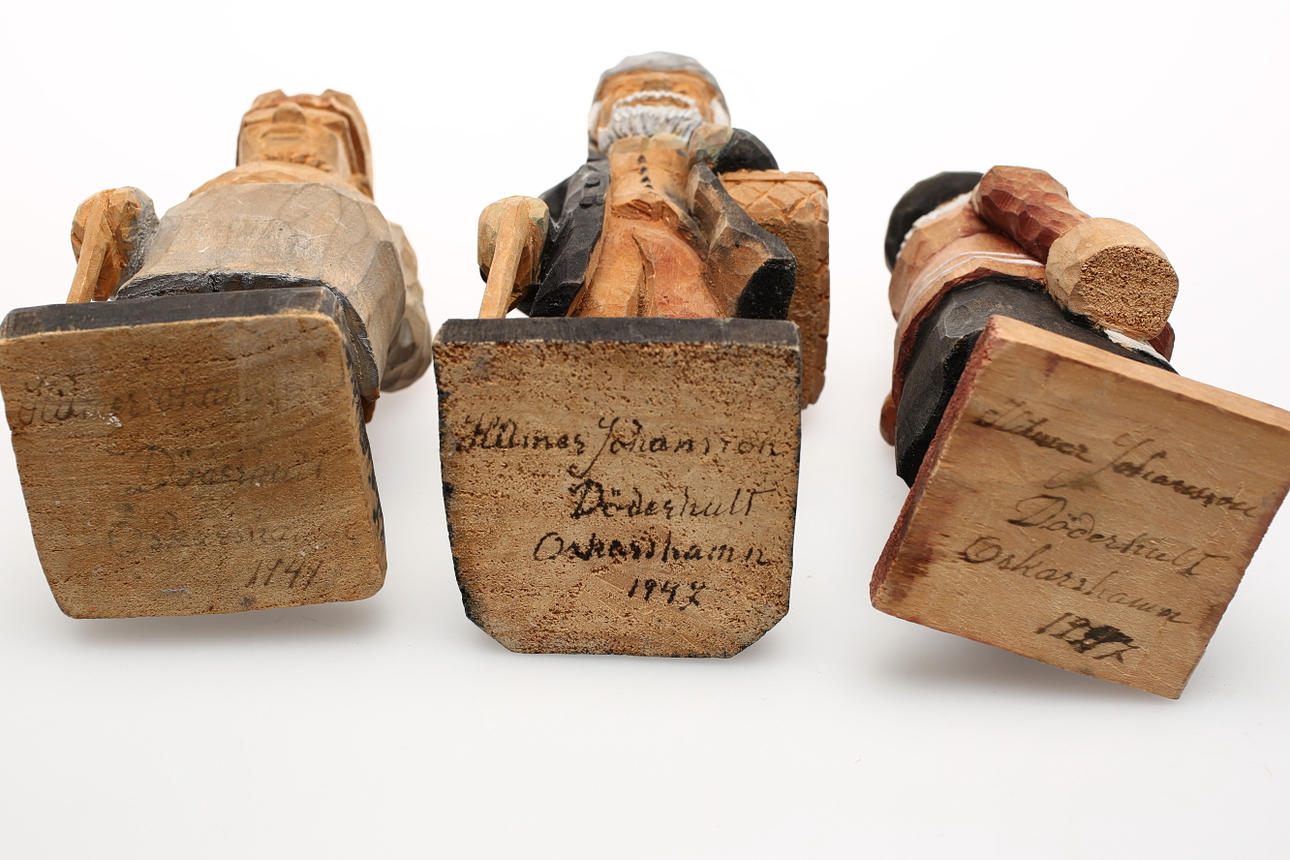 Hilmer Johansson
Döderhult
Oskarshamn
Hilmer Johansson
Döderhult
Oskarshamn
1947
Hilmer Johansson
Döderhult
Oskarshamn